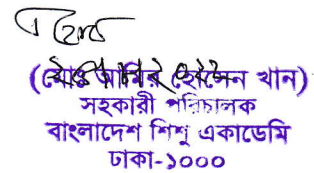 (মোঃ আমির হোসেন খান)
সহকারী পরিচালক
বাংলাদেশ শিশু একাডেমি
ঢাকা-১০০০